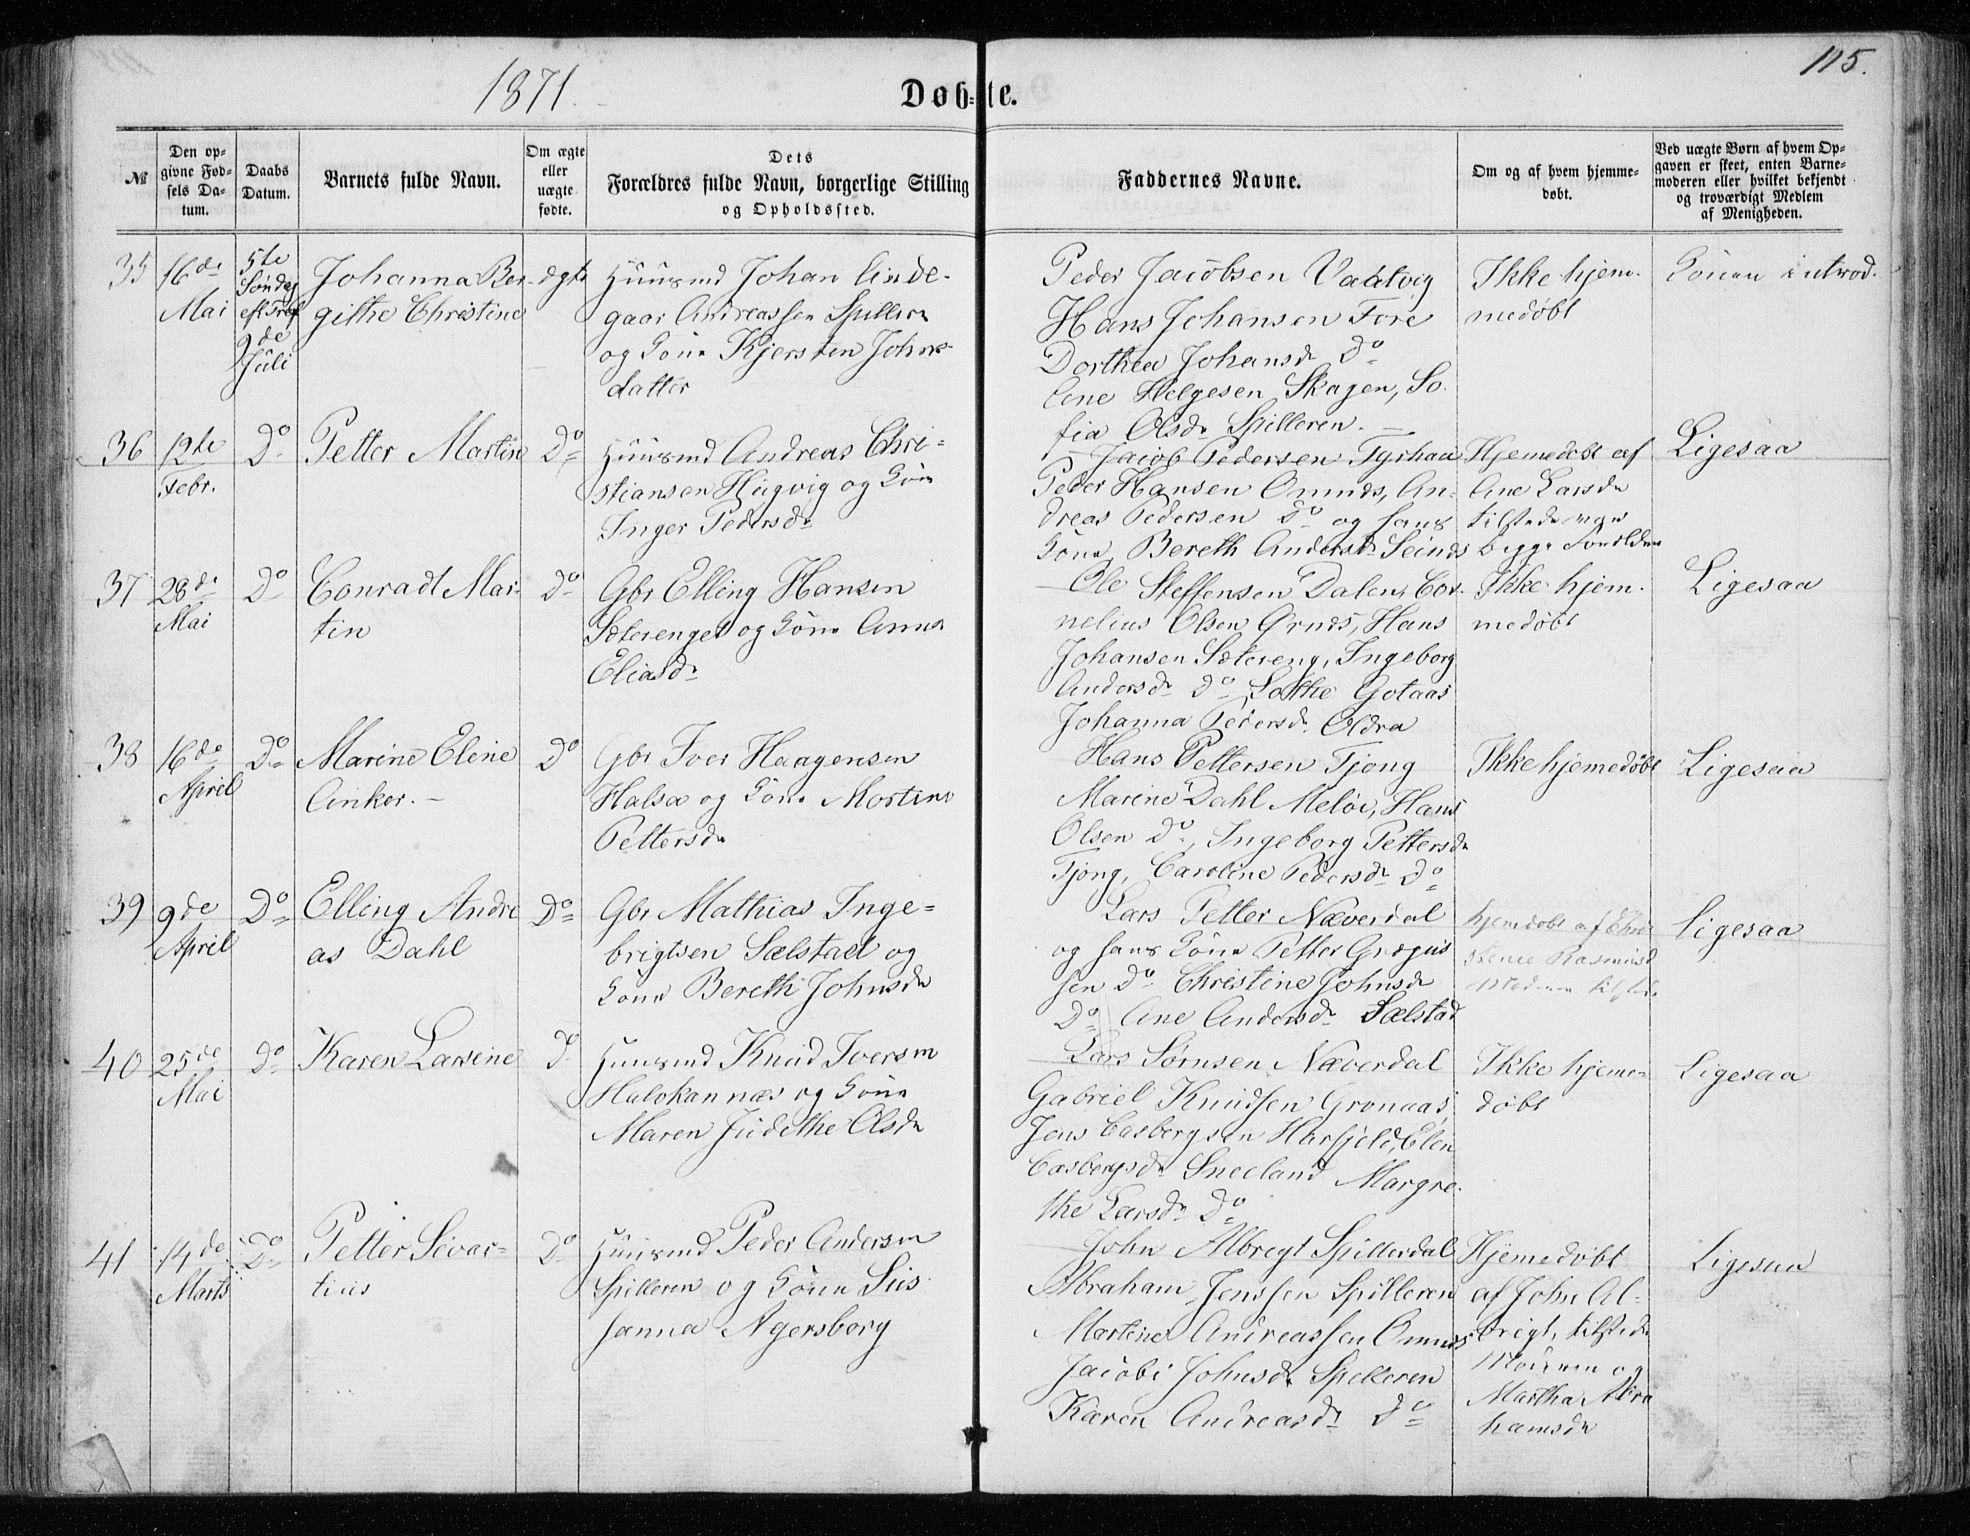 1871.
Døb-te.
115.
№
Den op-
givne Fød-
sels Da-
tum.
Daabs
Datum.
Barnets fulde Navn.
Om ægte
eller
uægte
fødte.
Dets
Forældres fulde Navn, borgerlige Stilling
og Opholdssted.
Faddernes Navne.
Om og af hvem hjemme-
døbt.
Ved uægte Børn af hvem Op-
gaven er skeet, enten Barne-
moderen eller hvilket bekjendt
og troværdigt Medlem
af Menigheden.
35
16de
Mai
5te
Søndag
eft Tref
9de
Juli
Johanna Ber-
githe Christine
ægte
Huusmd Johan Linde-
gaar Andreassen Spilleren
og Kone Kjersten Johns-
datter
Peder Jacobsen Vaatvig
Hans Johansen Fore
Dorthea Johansdr Do
Ane Helgesen Skagen, So-
fia Olsdr Spilleren. —
Ikke hjem-
medøbt
Konen introd.
36
12te
Febr.
Do
Petter Martin
Do
Huusmd Andreas Chri-
stiansen Hugvig og Kone
Inger Pedersdr
Jacob Pedersen Tyshau
Peder Hansen Ørnnds, An-
dreas Pedersen Do og hans
Kone, Bereth Andersdr Seinds
Hjemedøbt af
Ane Larsdr
tilstede var
begge Forældre
Ligesaa
37
28de
Mai
Do
Conradt Mar-
tin
Do
Gbr Elling Hansen
Sæterenget og Kone Anna
Eliasdr
Ole Steffensen Dalen, Cor-
nelius Olsen Ørnds, Hans
Johansen Sætereng, Ingeborg
Andersdr Do Lothe Gotaas
Johanna Pedersdr Aldra
Ikke hjem-
medøbt
Ligesaa
38
16de
April
Do
Marine Eline
Anker. —
Do
Gbr Iver Haagensen
Halsa og Kone Martine
Pettersdr
Hans Pettersen Tjong
Marine Dahl Meløe, Hans
Olsen Do, Ingeborg Pettersdr
Tjong, Caroline Pedersdr Do
Ikke hjemedøbt
Ligesaa
39
9de
April
Do
Elling Andre
as Dahl
Do
Gbr Mathias Inge-
brigtsen Sælstad og
Kone Bereth Johnsdr
Lars Petter Næverdal
og hans Kone Petter Gregus
sen Do Christine Johnsdr
Do Ane Andersdr Sælstad
hjemdøbt af Chri
stence Rasmusd
Moderen tilstede
Ligesaa
40
25de
Mai
Do
Karen Larsine
Do
Huusmd Knud Iversen
Halokannæs og Kone
Maren Judethe Olsdr
Lars Sørnsen Næverdal
Gabriel Knudsen Grønaas
Jens Casbergsen Harfjeld, Elen
Casbergsdr Sneeland Margre-
the Larsdr Do
Ikke hjeme-
døbt
Ligesaa
41
14de
Marts
Do
Petter Sivar-
tius
Do
Huusmd Peder Andersen
Spilleren og Konen Sus
sanna Agersborg
John Albregt Spillerdal
Abraham Jenssen Spilleren
Martine Andreassen Ørnnds
Jacobi Johnsdr Spilleren
Karen Andreasdr Do
Hjemedøbt
af John Al-
bregt, tilstede
Moderen og
Martha Abra
hamsdr
Ligesaa